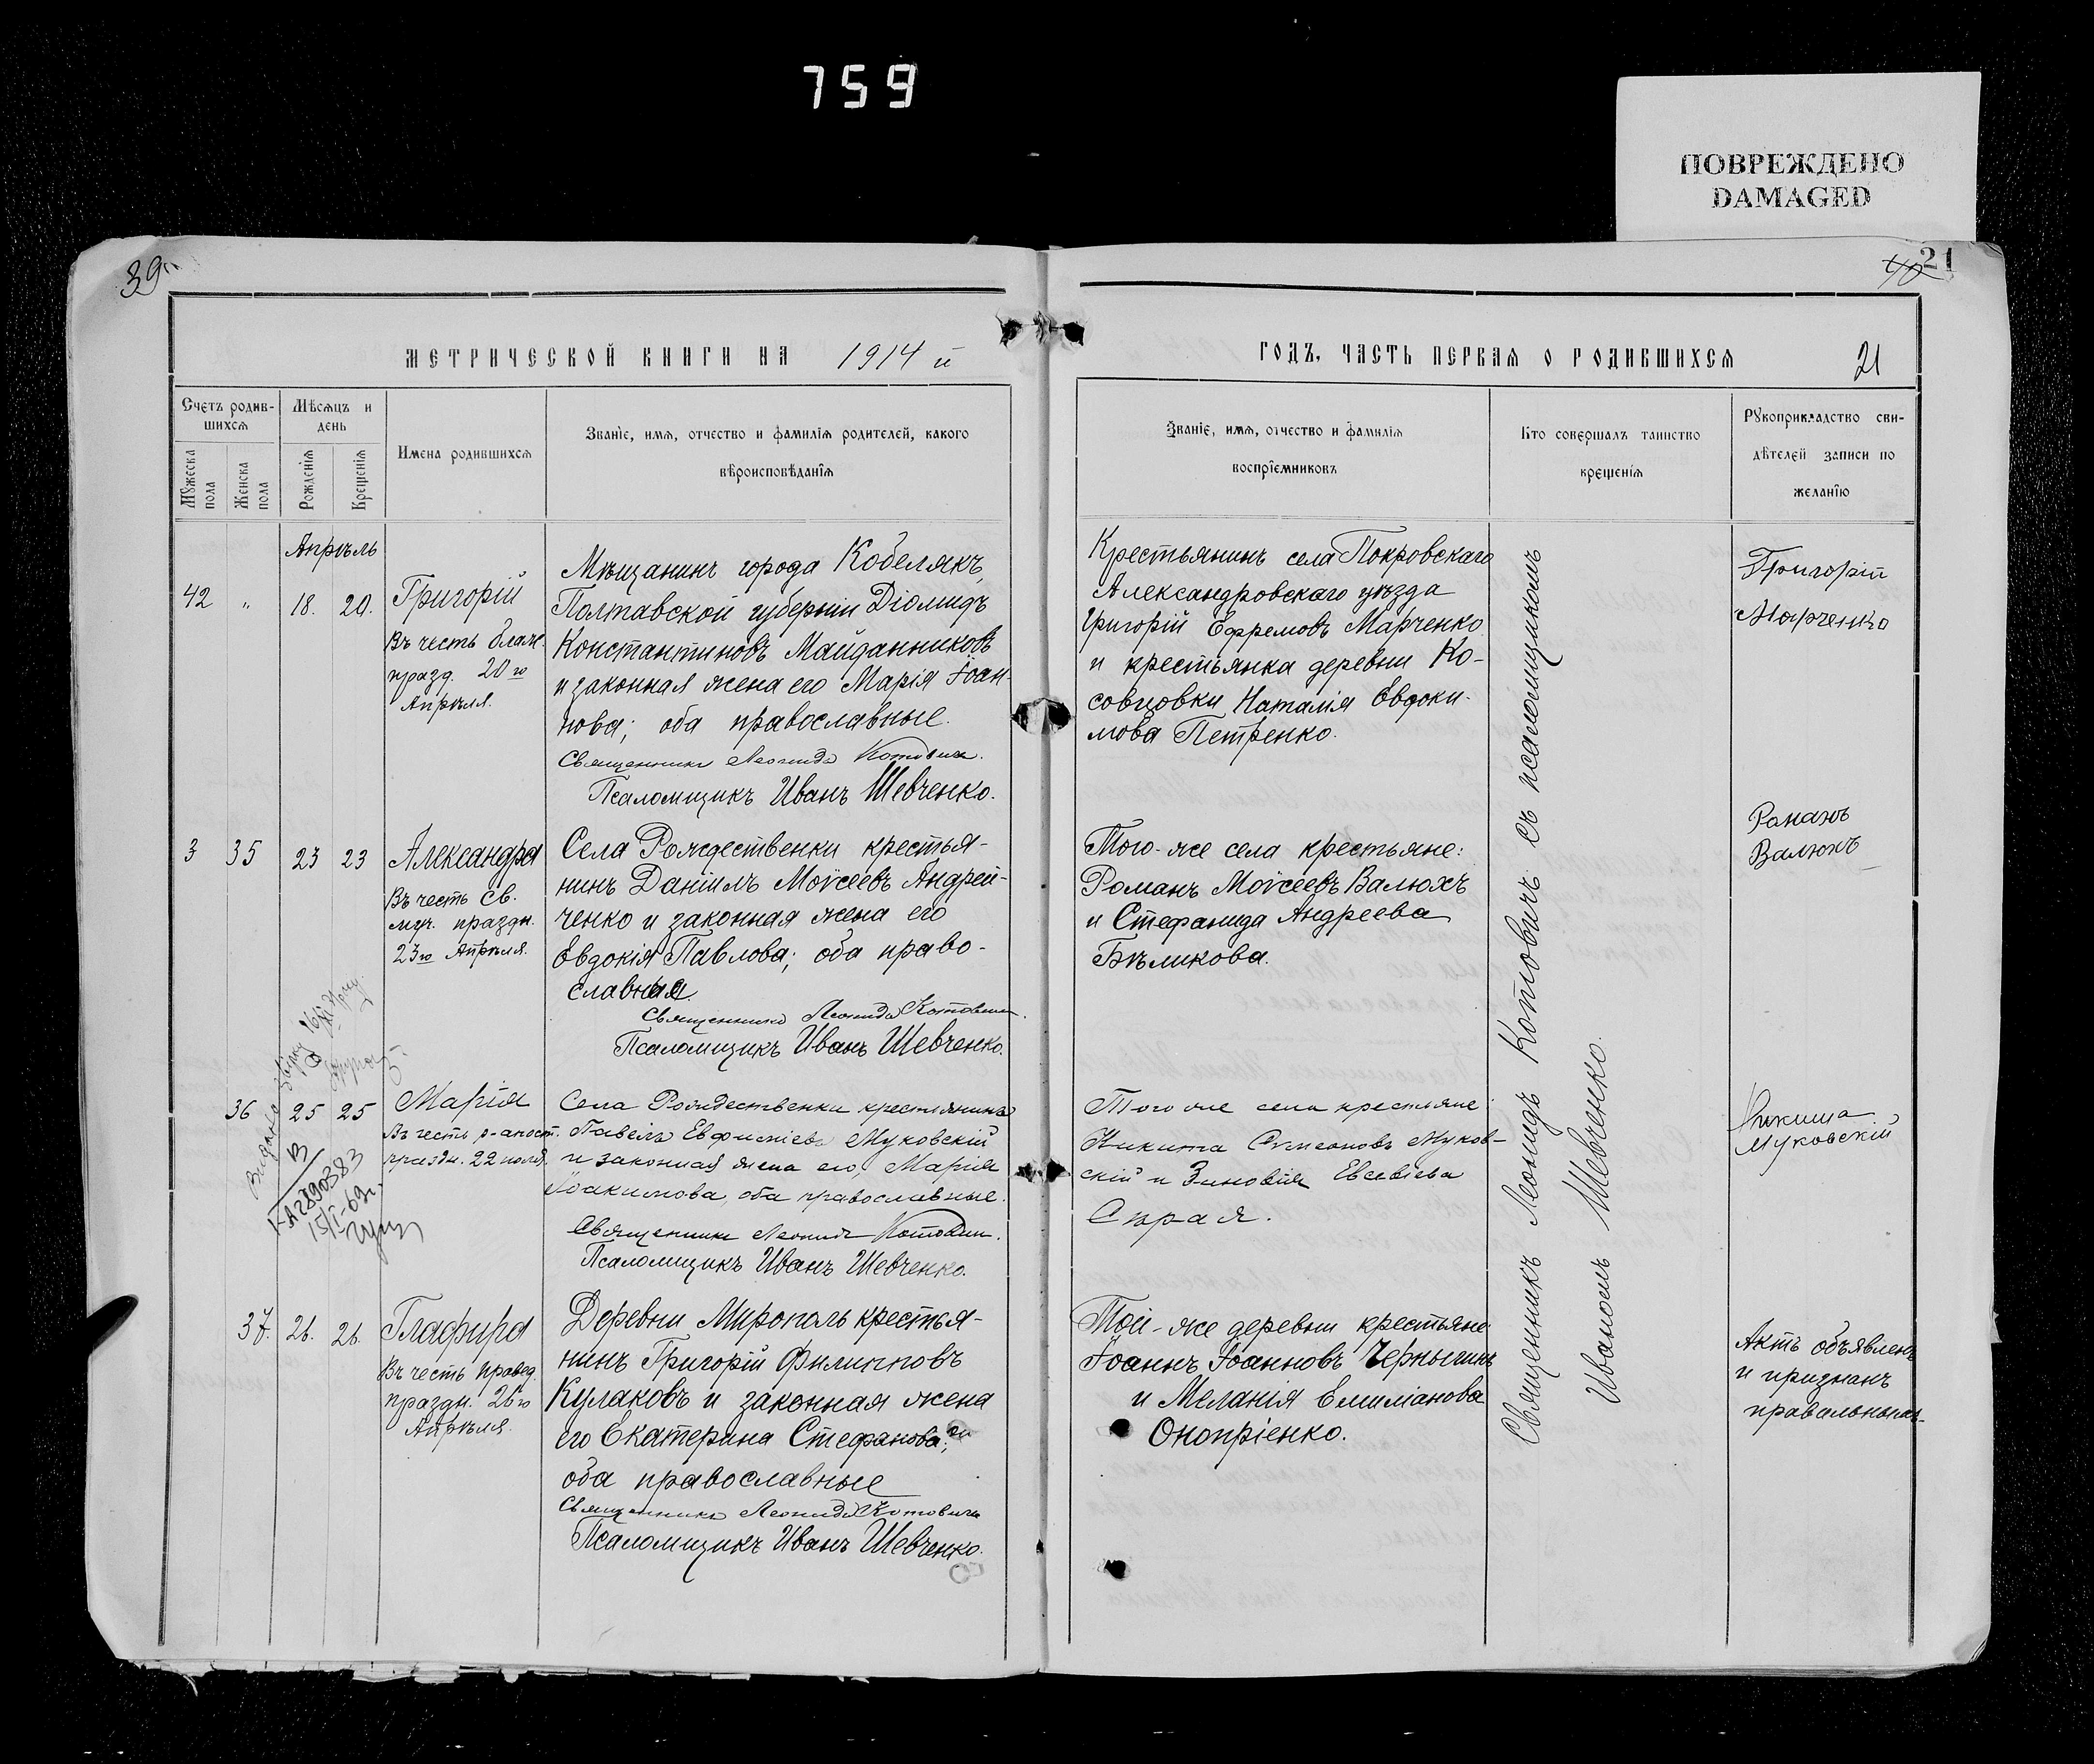 759
ПОВРЕЖДЕНО
DAMAGED
39
40
21
МЕТРИЧЕСКОЙ КНИГИ НА 1914 й
ГОДЪ, ЧАСТЬ ПЕРВАЯ О РОДИВШИХСЯ
21
Счетъ родив-
шихся
Мѫжеска пола
Женска пола
Мѣсяцъ и
день
Рожденія
Крещенія
Имена родившихся
Званіе, имя, отчество и фамилія родителей, какого
вѣроисповѣданія
Званіе, имя, отчество и фамилія
воспріемниковъ
Кто совершалъ таинство
крещенія
Рукоприкладство сви-
дѣтелей записи по
желанію
Апрѣль
42 " 18. 20.
Григорій
Въ честь
празд. 20го
Апрѣля.
Мѣщанинъ города Кобелякъ,
Полтавской губерніи Діомидъ
Константиновъ Майданниковъ
и законная жена его Марія Іоан-
нова; оба православные.
Священникъ Леонидъ Котовичъ.
Псаломщикъ Иванъ Шевченко.
Крестьянинъ села Покровскаго
Александровскаго уѣзда
Григорій Ефремовъ Марченко
и крестьянка деревни Ко-
совцовки Наталія Евдоки-
мова Петренко.
Григорій
Марченко
3 35 23 23
Александра
Въ честь св.
муч. праздн.
23го Апрѣля.
Села Рождественки крестья-
нинъ Даніилъ Моѵсеевъ Андрей-
ченко и законная жена его
Евдокія Павлова; оба право-
славные.
Священникъ Леонидъ Котовичъ.
Псаломщикъ Иванъ Шевченко.
Того-же села крестьяне:
Романъ Моѵсеевъ Валюхъ
и Стефанида Андреева
Бѣликова.
Романъ
Валюхъ
36 25 25
Марія
Въ честь р-апост.
праздн. 22 іюля.
Села Рождественки крестьянинъ
Павелъ Евфиміевъ Муковскій
и законная жена его, Марія
Іоакимова, оба православные.
Священникъ Леонидъ Котовичъ.
Псаломщикъ Иванъ Шевченко.
Того же села крестьяне
Никита Симеоновъ Муков-
скій и Зиновія Евсевіева
Сѣрая.
Никита
Муковскій
Видана
15/I-69г.
37. 26. 26.
Глафира
Въ честь правед.
праздн. 26го
Апрѣля.
Деревни Мирополь крестья-
нинъ Григорій Филипповъ
Кулаковъ и законная жена
его Екатерина Стефанова;
оба православные
Священникъ Леонидъ Котовичъ
Псаломщикъ Иванъ Шевченко.
Той-же деревни крестьяне
Іоаннъ Іоанновъ Черныгинъ
и Меланія Емиліанова
Онопріенко.
Актъ объявленъ
и признанъ
правильнымъ
Священникъ Леонидъ Котовичъ съ псаломщикомъ
Иваномъ Шевченко.